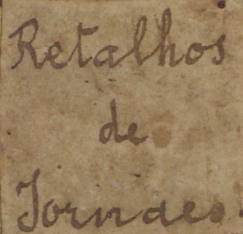 Retalhos
de
Jornaes.